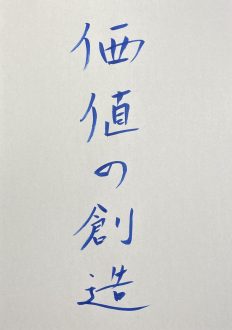 価値の創造